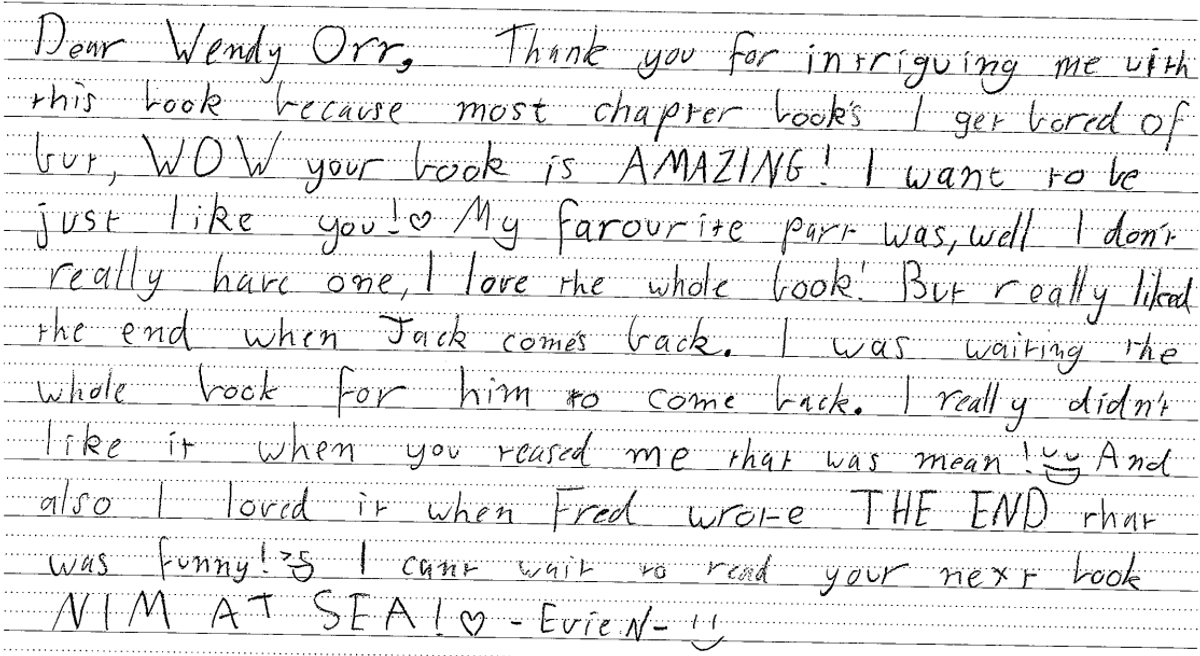 Dear Wendy Orr, Thank you for intriguing me with
this book because most chapter book's I get bored of
but, WOW your book is AMAZING! I want to be
just like you!♡ My favourite part was, well I don't
really have one, I love the whole book! But really liked
the end when Jack come's back. I was waiting the
whole book for him to come back. I really didn't
like it when you teased me that was mean! And
also I loved it when Fred wrote THE END that
was funny! I can't wait to read your next book
NIM AT SEA!♡ - Evie N-